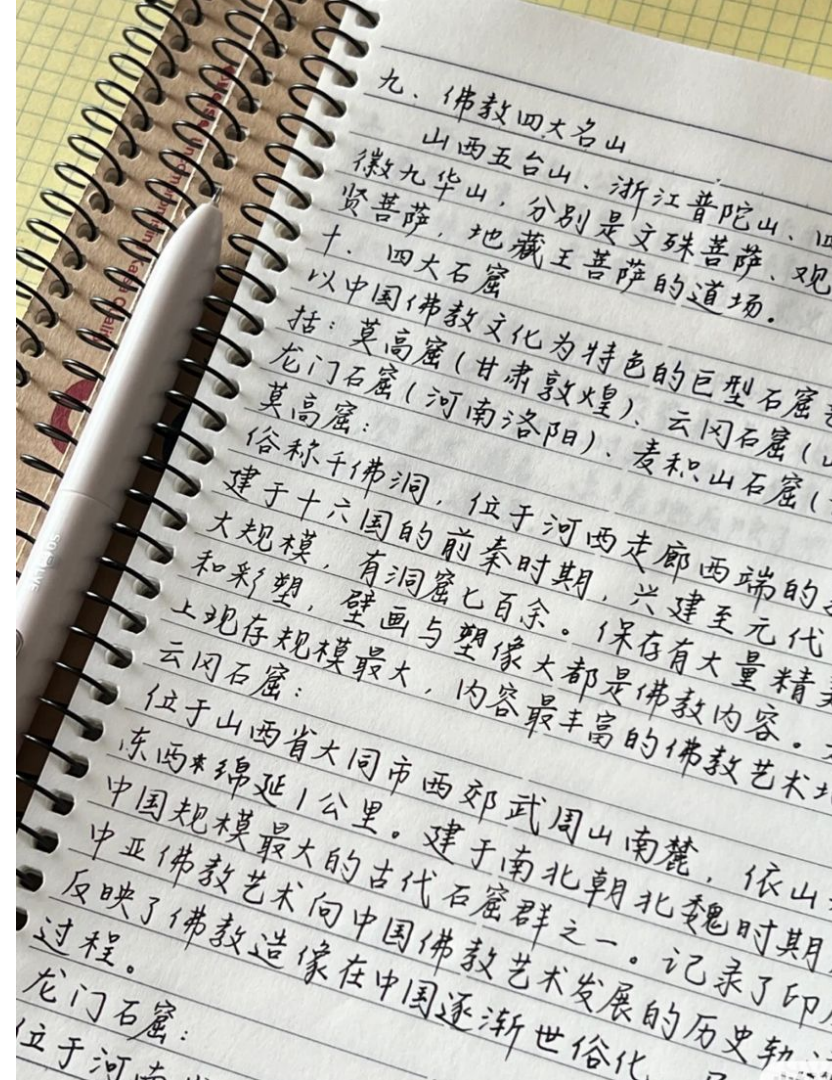 九、佛教四大名山
山西五台山、浙江普陀山、四
徽九华山，分别是文殊菩萨、观
贤菩萨，地藏王菩萨的道场。
十、四大石窟
以中国佛教文化为特色的巨型石窟
括：莫高窟(甘肃敦煌)、云冈石窟(山
龙门石窟(河南洛阳)、麦积山石窟(
莫高窟：
俗称千佛洞，位于河西走廊西端的
建于十六国的前秦时期，兴建至元代
大规模，有洞窟七百余。保存有大量精美
和彩塑，壁画与塑像大都是佛教内容。
上现存规模最大，内容最丰富的佛教艺术地
云冈石窟：
位于山西省大同市西郊武周山南麓，依山
东西绵延1公里。建于南北朝北魏时期
中国规模最大的古代石窟群之一。记录了印
中亚佛教艺术向中国佛教艺术发展的历史轨
反映了佛教造像在中国逐渐世俗化、
过程。
龙门石窟：
位于河南